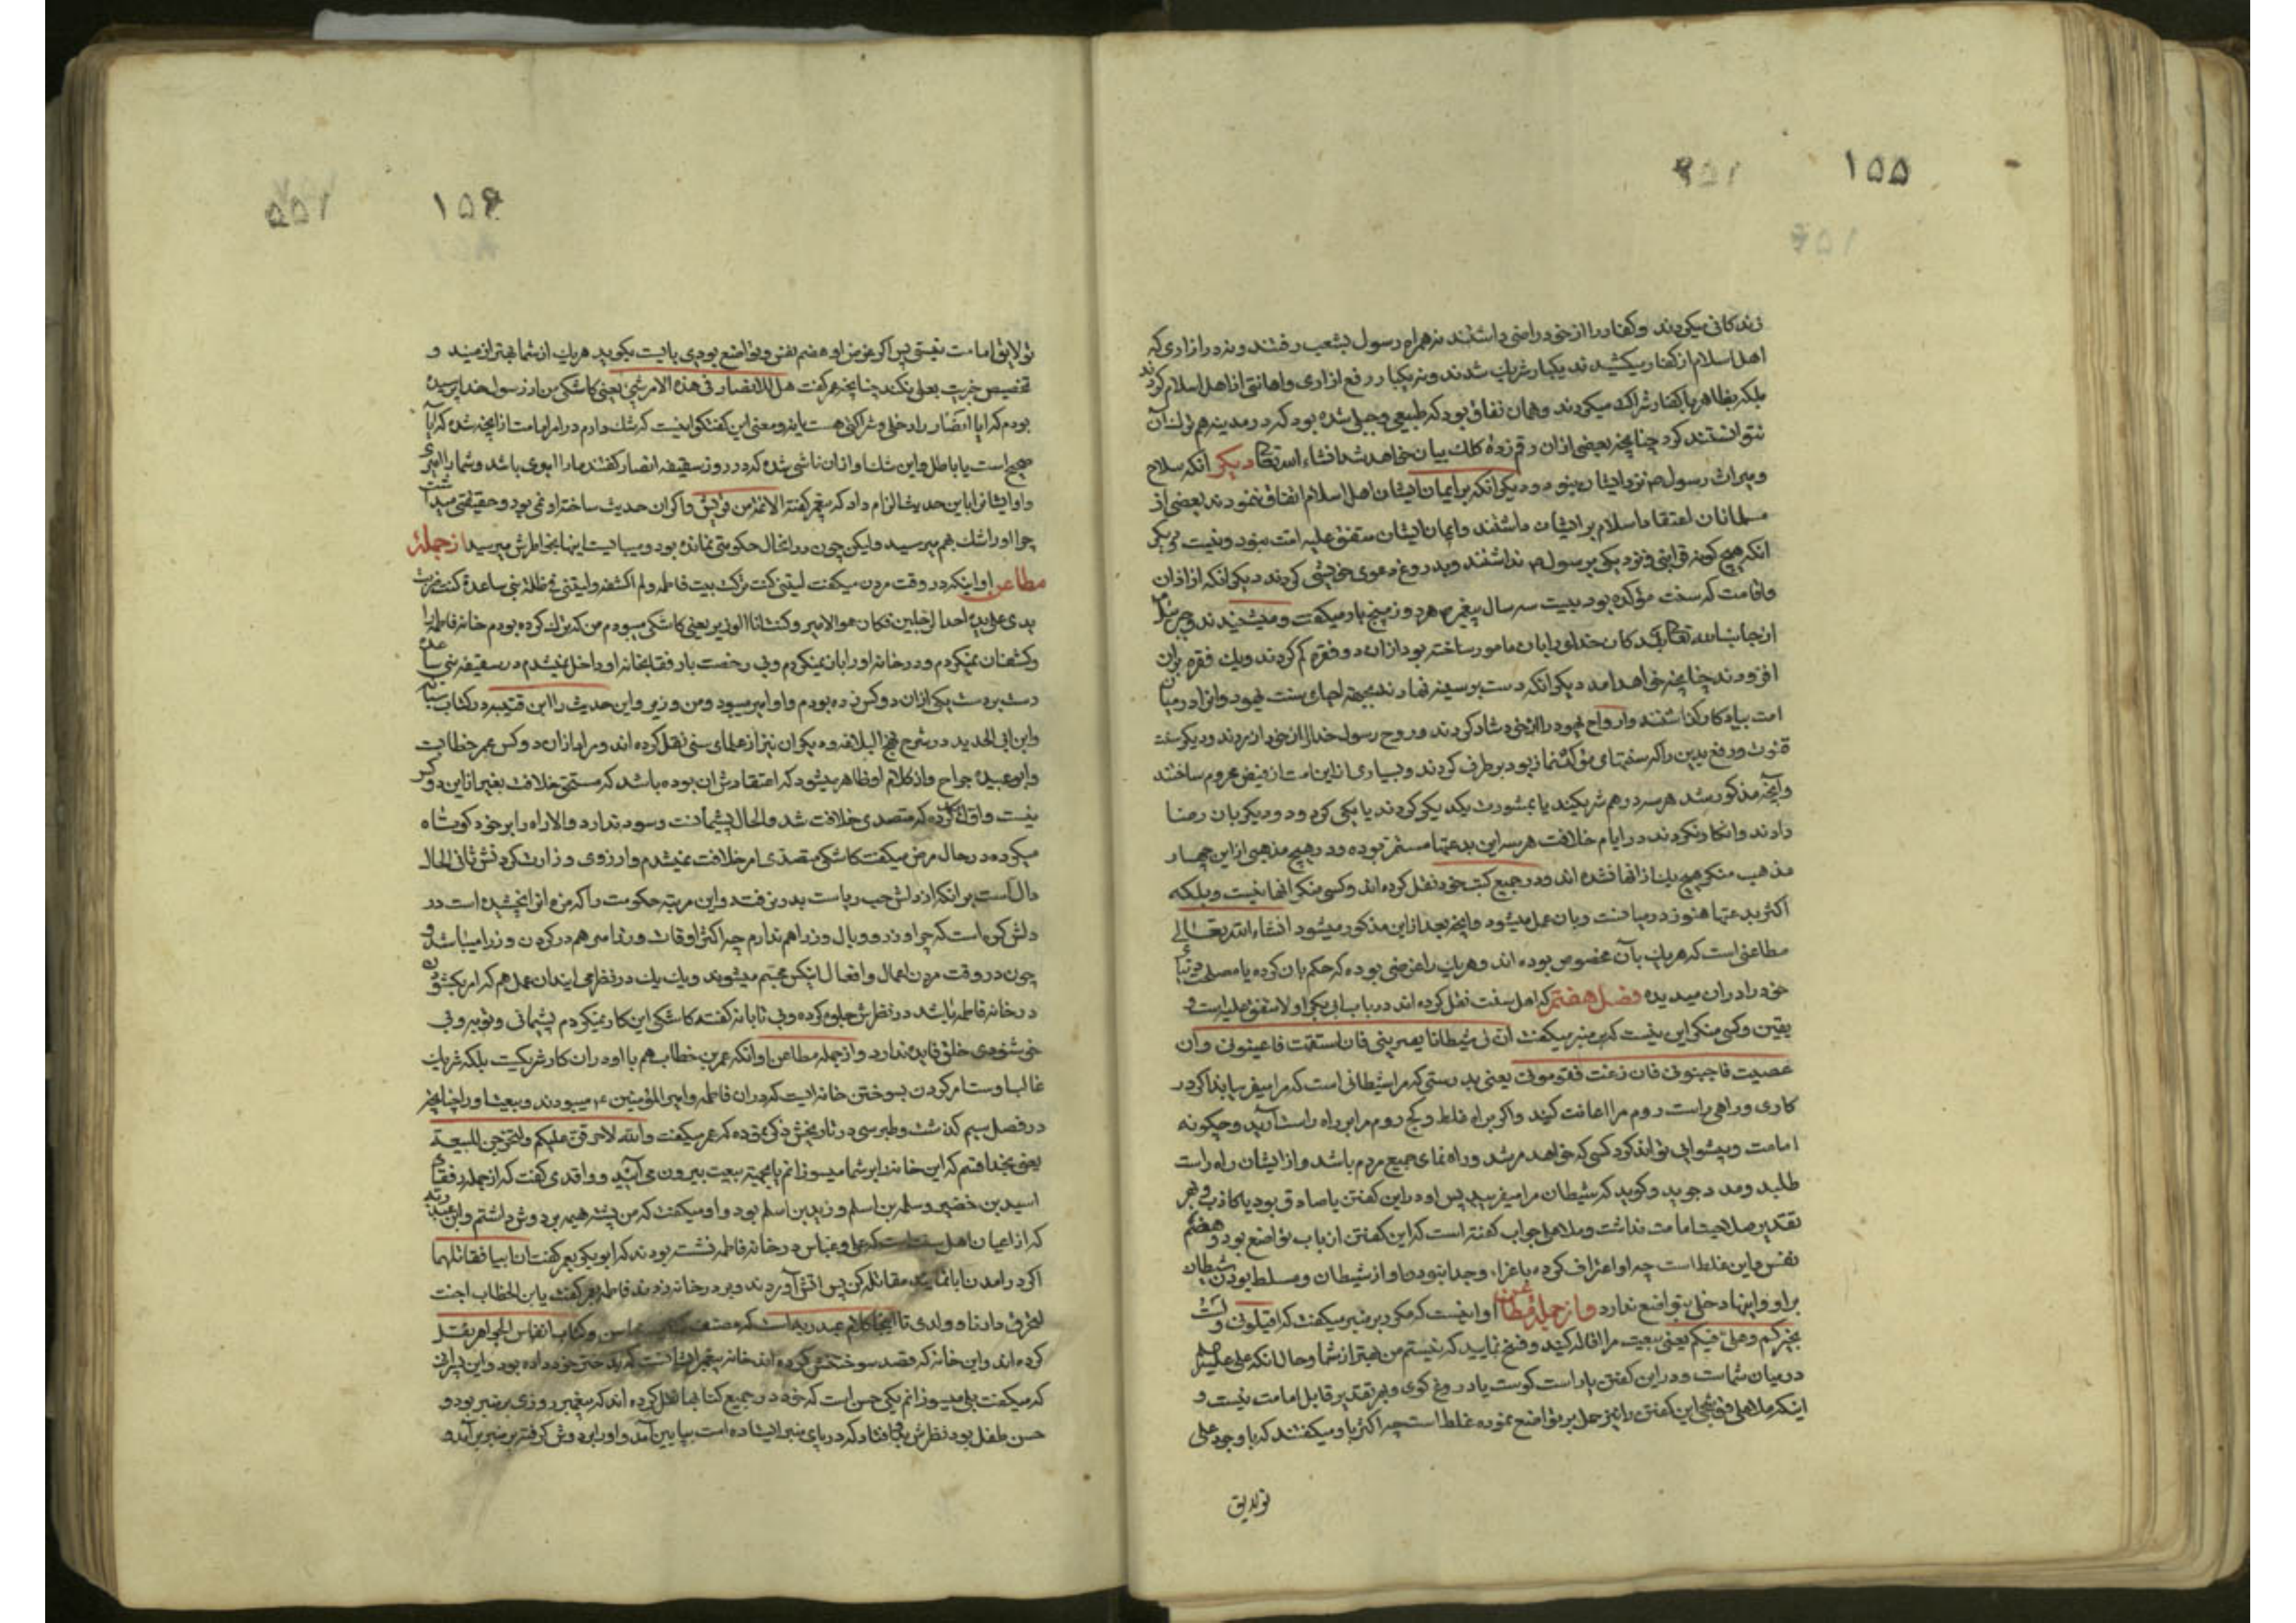 ۱۵۵
زندکانی میکردند و کفار را از خود راضی داشتند نه همراه رسول بشعب رفتند و نه در ازاری که
اهل اسلام از کفار میکشیدند یکبار شریک شدند و نه یکبار رفع ازاری و اهانتی از اهل اسلام کردند
بلکه بظاهر با کفار شراکت میکردند و همان نفاق بود که طبیعی و جبلی شده بود که در مدینه هم ترک آن
نتوانستند کرد چنانچه بعضی ازان رقم زدهٔ کلک بیان خواهد شد انشاء الله تعالی دیکر انکه سلاح
و میراث رسول ص نزد ایشان نبود و دیکر انکه بر ایمان ایشان اهل اسلام اتفاق ننمودند بعضی از
مسلمانان اعتقاد اسلام بر ایشان داشتند و ایمان ایشان متفق علیه امت نبود و نیست دیکر
انکه هیچ کونه قرابتی و نزدیکی برسول ص نداشتند و بدروغ دعوی خویشی کردند دیکر انکه از اذان
و اقامت که سنت مؤکده بود بیست سه سال پیغمبر ص هر روز پنج بار میکفت و میشنیدند و جبرئیل
از جانب الله تعالی بندکان خدا را بان مامور ساخته بود ازان دو فقره کم کردند و یک فقره بران
افزودند چنانچه خواهد امد دیکر انکه دست بر سینه نهادند بجهة احیای سنت یهود و انرا در میان
امت بیادکار کذاشتند و ارواح یهود را از خود شاد کردند و روح رسول خدا را از خود ازردند و دیکر سنت
قنوت و رفع یدین را که سنتهای مؤکد نماز بود بر طرف کردند و بسیاری از این امت از فیض محروم ساختند
و آنچه مذکور شد هر سه در هم شریکند یا بمشورت یکدیکر کردند یا یکی کرد و دو دیکر بان رضا
دادند و انکار نکردند در ایام خلافت هر سه این بدعتها مستمر بوده و در هیچ مذهبی از این چهار
مذهب منکر هیچ یک از انها نشده اند و در جمیع کتب خود نقل کرده اند و کسی منکر انها نیست و بلکه
اکثر بدعتها هنوز در میانست و بان عمل میشود و انچه بعد از این مذکور میشود انشاء الله تعالی
مطاعنی است که هر یک بآن مخصوص بوده اند و هر یک را غرضی بوده که حکم بان کرده یا مصلحت دنیای
خود را در ان میدیده فصل هفتم که اهل سنت نقل کرده اند در باب ابی بکر اولا متفق علیه است و
یقین و کسی منکر این نیست که بر منبر میکفت ان لی شیطانا یعتریني فان استقمت فاعینونی و ان
عصیت فاجنبونی فان زغت فقومونی یعنی بدرستی که مرا شیطانی است که مرا میفریباند اکر در
کاری و راهی راست روم مرا اعانت کنید و اکر براه غلط و کج روم مرا بر راه راست آرید و چکونه
امامت و پیشوایی تواند کرد کسی که خواهد مرشد و راه نمای جمیع مردم باشد و از ایشان راه راست
طلبد و مدد جوید و کوید که شیطان مرا میفریبد پس او در این کفتن یا صادق بود یا کاذب و بهر
تقدیر صلاحیت امامت نداشت و ملا علی جواب کفته است که این کفتن از باب تواضع بود و هضم
نفس و این غلط است چه او اعتراف کرده باغراء و جدا نبودن او از شیطان و مسلط بودن شیطان
بر او و اینها دخلی بتواضع ندارد و از جملهٔ مطاعن او اینست که مکرر بر منبر میکفت که اقیلونی و لست
بخیرکم و علی فیکم یعنی بیعت مرا اقاله کنید و فسخ نمایید که نیستم من بهتر از شما و حال انکه علی علیه السلم
در میان شماست و در این کفتن یا راست کوست یا دروغ کوی و بهر تقدیر قابل امامت نیست و
اینکه ملا علی قوشجی این کفتن را نیز حمل بر تواضع نموده غلط است چه اکثر باو میکفتند که با وجود علی
تو لایق
۱۵۶
تو لایق امامت نیستی پس اکر غرض او هضم نفس و تواضع بودی بایست بکوید هر یک از شما بهتر از منید و
تخصیص خیریت بعلی نکند چنانچه عمر کفت هل للانصار فی هذه الامر شئ یعنی کاشکی من از رسول خدا پرسیده
بودم که ایا انصار را دخلی و شراکتی هست یا نه و معنی این کفتکو اینست که شک دارم در امر امامت از انچه شده که آیا
صحیح است یا باطل و این شک او از ان ناشی شده که در روز سقیفه انصار کفتند ما را امیری باشد و شما را امیری
و او ایشانرا باین حدیث الزام داد که پیغمبر کفته الائمة من قریش و اکر ان حدیث ساخته او نمی بود و حقیقتی میداشت
چرا او را شک بهم میرسید و لیکن چون در انحال حکومتی نمانده بود و میبایست اینها بخاطرش میرسید از جملهٔ
مطاعن او اینکه در وقت مردن میکفت لیتنی کنت ترکت بیت فاطمه و لم اکشفه و لیتنی فی ظلة بنی ساعدة کنت ضربت
یدی علی ید احد الرجلین فکان هو الامیر و کنت انا الوزیر یعنی کاشکی میبودم من که ترک کرده بودم خانه فاطمه را
و کشف ان نمیکردم و در خانه او را باز نمیکردم و بی رخصت با رفقا بخانه او داخل نمیشدم در سقیفه بنی ساعده
دست بر دست یکی ازان دو کس زده بودم و او امیر میبود و من وزیر و این حدیث را ابن قتیبه در کتاب سیاسة
و ابن ابی الحدید در شرح نهج البلاغه و دیکران نیز از علمای سنی نقل کرده اند و مراد ازان دو کس عمر خطابست
و ابو عبیده جراح و از کلام او ظاهر میشود که اعتقادش ان بوده باشد که مستحق خلافت بغیر از این دو کس
نیست و اقرار کرده که متصدی خلافت شد و الحال پشیمانست و سود ندارد و الا راه را بر خود کوتاه
میکرد و در حال مرض میکفت کاشکی متصدی امر خلافت نمیشدم و ارزوی وزارت کردنش ثانی الحال
دالست بر انکه از دلش حب ریاست بدر نرفته و این مرتبه حکومت را که مزه انرا چشیده است در
دلش کره است که چرا وزر و وبال وزرا هم ندارم چه اکثر اوقات ورزا می هم در کردن وزرا میباشد و
چون در وقت مردن اعمال و افعال اینکس مجسم میشوند و یک یک در نظر می ایند ان عمل هم که امر بکشودن
در خانه فاطمه باشد در نظرش جلوه کرده و بی تابانه کفته کاشکی این کار نمیکردم پشیمانی و توبه و بی
خوشنودی خلق فایده ندارد و از جمله مطاعن او انکه عمر بن خطاب هم با او در ان کار شریکست بلکه شریک
غالب اوست امر کردن بسوختن خانه ایست که در ان فاطمه و امیر المؤمنین ع میبودند و بیعت او را چنانچه
در فصل سیم کذشت و طبرسی در تاریخش ذکر نموده که عمر میکفت والله لاحرقن علیکم و لتخرجن للبیعة
یعنی بخدا قسم که این خانه را بر شما میسوزانم یا بجهة بیعت بیرون می آئید و واقدی کفت که از جمله رفقای
اسید بن خضیر و سلمه بن اسلم و زید بن اسلم بود و او میکفت که من پشته هیمه بر دوش داشتم و ابن عبد ربه
که از اعیان اهل سنت است که علی و عباس در خانه فاطمه نشسته بودند که ابو بکر بعمر کفت ان ابیا فقاتلهما
اکر در امدن ابا نمایند مقاتله کن پس اتش آوردند و بر در خانه زدند فاطمه بعمر کفت یابن الخطاب اجئت
لتحرق دارنا و ولدی تا اینجا کلام عبد ربه است که مصنف کتاب و کتاب انفاس الجواهر نقل
کرده اند و این خانه که قصد سوختنش کرده اند خانه پیغمبر انست که بدختر خود داده بود و این پسرانی
که میکفت بلی میسوزانم یکی حسن است که خود در جمیع کتابها نقل کرده اند که پیغمبر روزی بر منبر بود و
حسن طفل بود نظرش باو افتاد که در پای منبر ایستاده است بپایین آمد و او را بر دوش کرفته بر منبر برآمد و